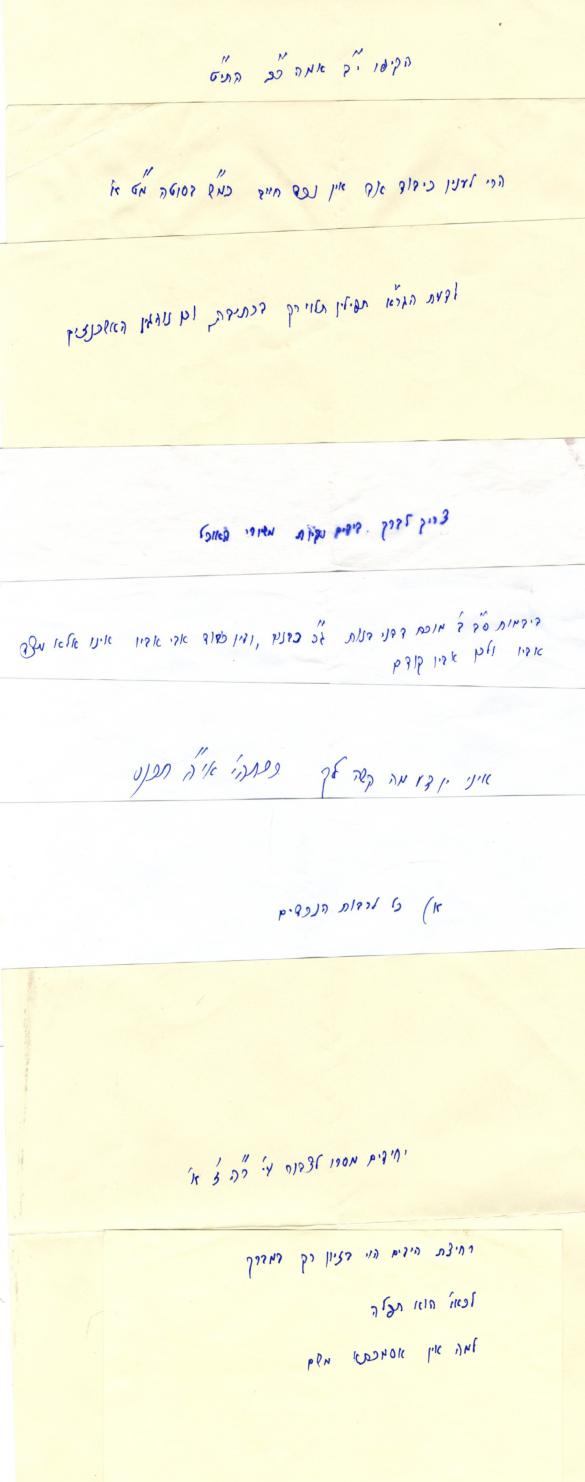 הקיפו י"ב אמה כ"ב התי"ט
הרי לענין כיבוד אב אין נכד חייב כמ"ש בסוטה מ"ט א'
לדעת הגר"א תפילין תלוי רק בכתיבת וכן נוהגין האשכנזים
צריך לברך בידים נקיות משירי האוכל
ביבמות ס"ב ב' מוכח דבני בנות ג"כ כבנים, ודין כבוד אבי אביו אינו אלא מצד
אביו ולכן אביו קודם
איני יודע מה קשה לך אי"ה
א) כל לרבות הנכדים
יחידים מסרו לצבור עי' ר"ה ז' א'
רחיצת הידים הוי בזיון רק במברך
לכאו' הוא תפלה
למה אין אסמכתא משם